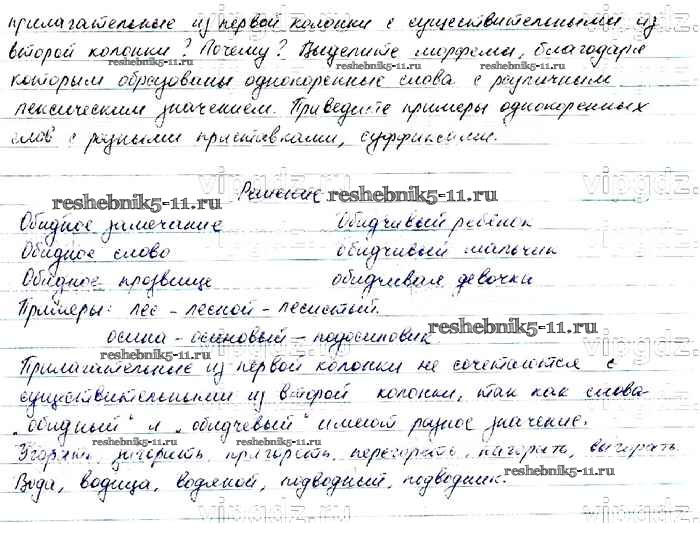 прилагательные из первой колонки с существительными из
второй колонки? Почему? Выделите морфемы, благодаря
которым образованы однокоренные слова с различным
лексическим значением. Приведите примеры однокоренных
слов с разными приставками, суффиксами.
Решение
Обидное замечание Обидчивый ребёнок
Обидное слово обидчивый мальчик
Обидное прозвище обидчивая девочка
Примеры: лес - лесной - лесистый.
осина - осиновый - подосиновик
Прилагательные из первой колонки не сочетаются с
существительными из второй колонки, так как слова
"обидный" и "обидчевый" имеют разное значение.
Угорать, загорать, пригорать, перегорать, нагорать, выгорать.
Вода, водица, водяной, подводный, подводник.
reshebnik5-11.ru
reshebnik5-11.ru
reshebnik5-11.ru
reshebnik5-11.ru
reshebnik5-11.ru
reshebnik5-11.ru
reshebnik5-11.ru
reshebnik5-11.ru
reshebnik5-11.ru
vipgdz.ru
vipgdz.ru